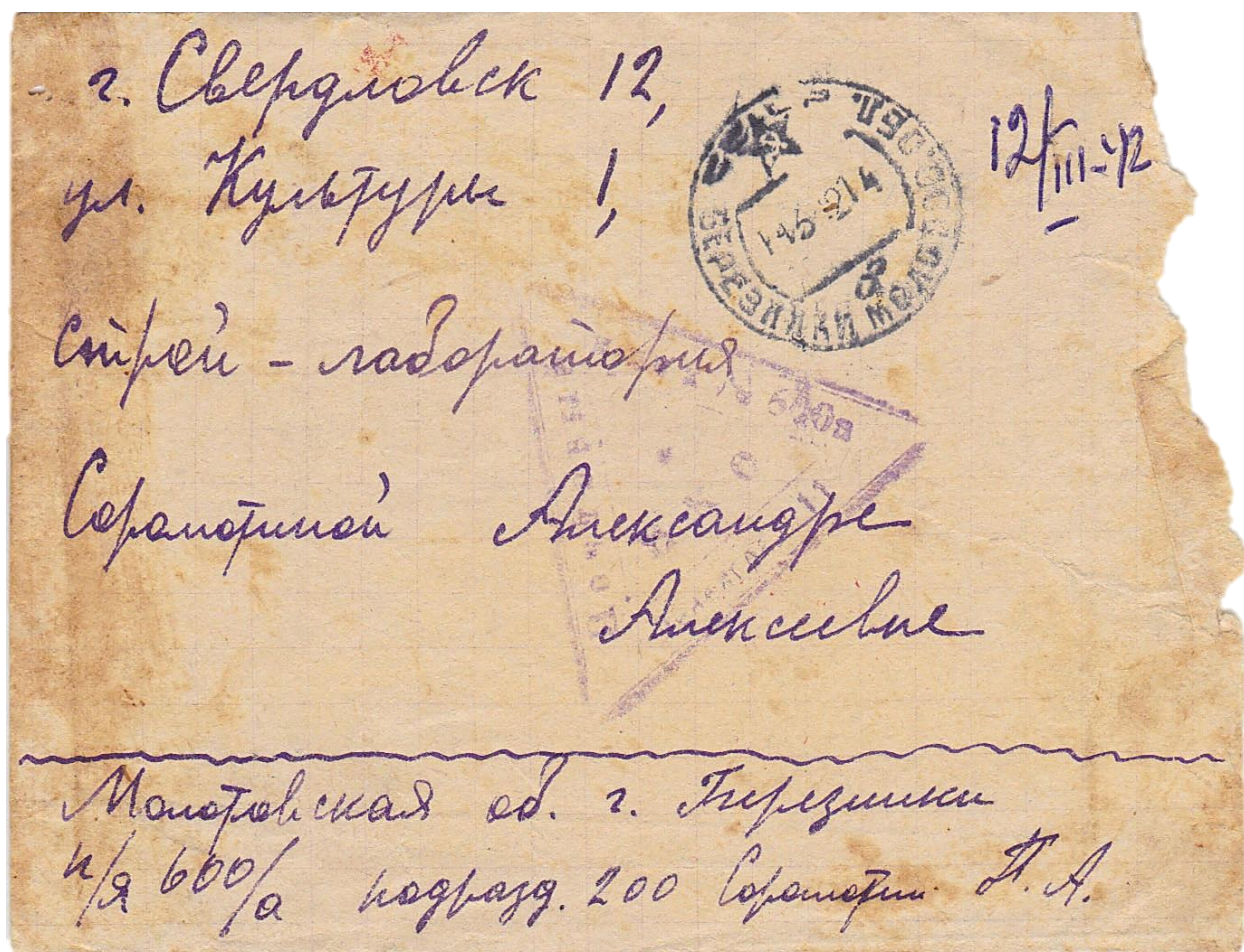 г. Свердловск 12,
ул. Культуры 1,
12/III-42
БЕРЕЗНИКИ МОЛОТОВСК. ОБЛ.
Строй - лаборатория
600а
Александре
Алексеевне
Молотовская об. г. Березники
п/я 600/а подразд. 200 П. А.